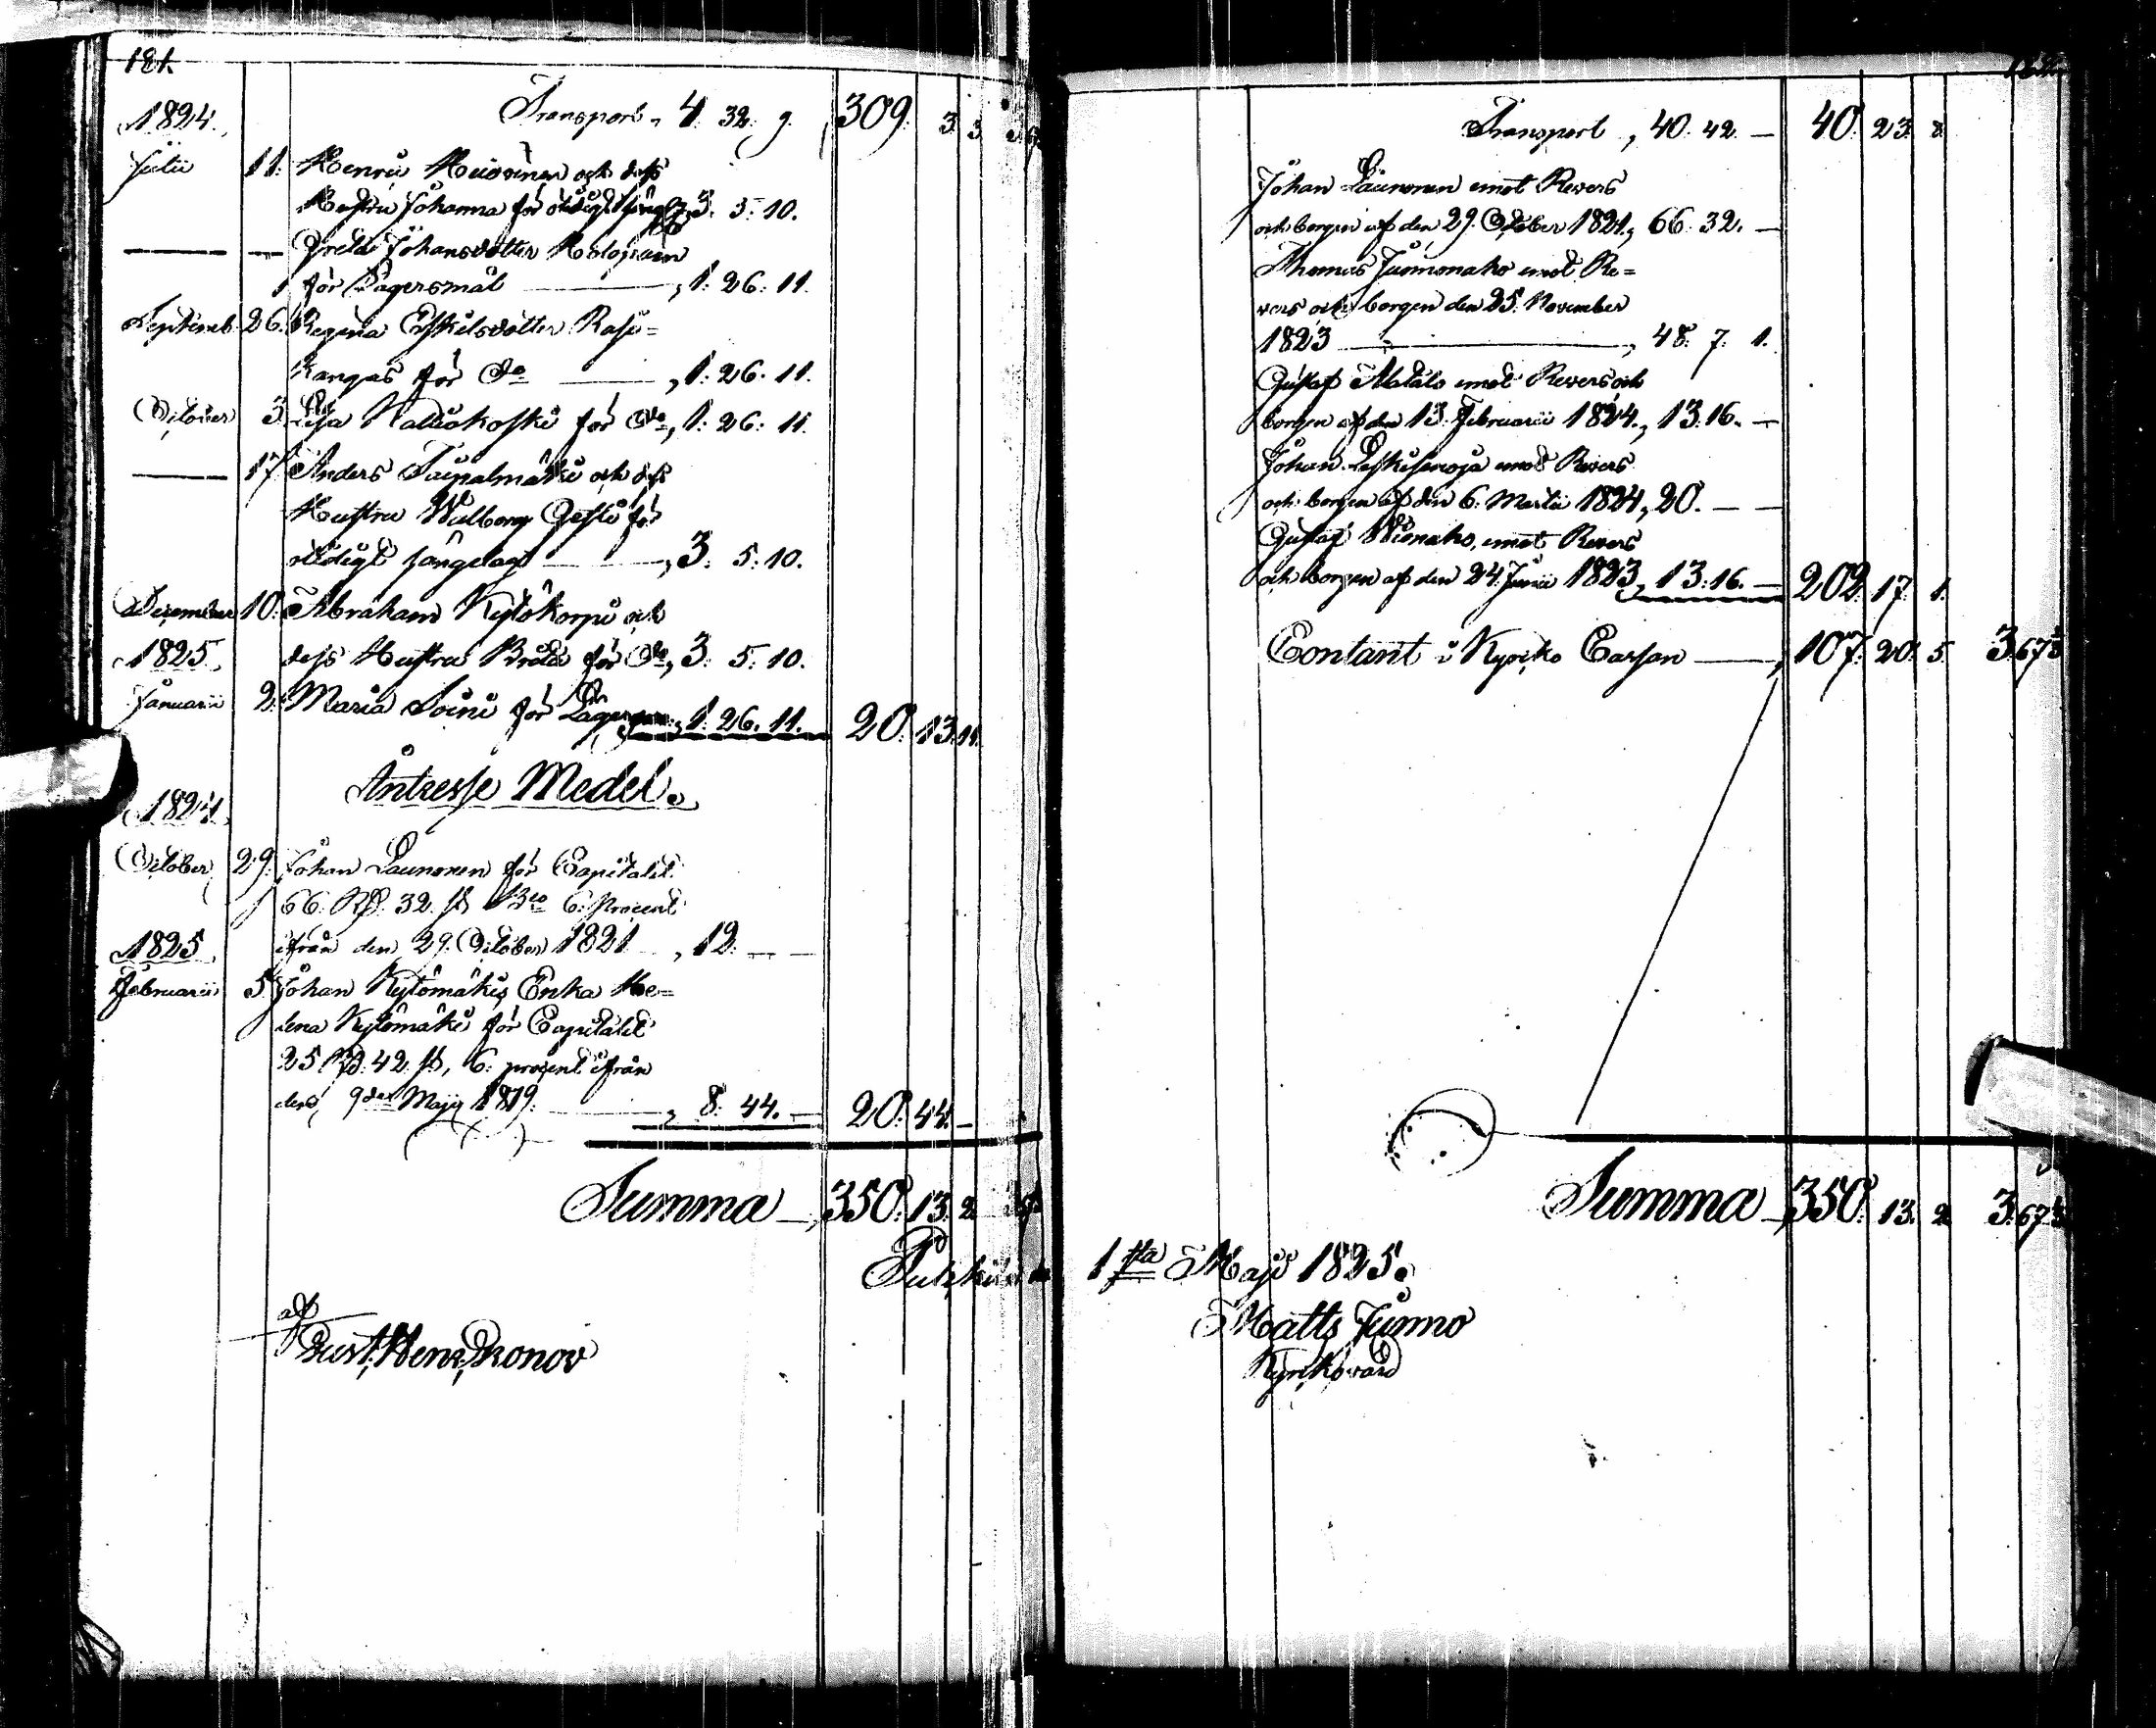 181.
1824. Transport, 4 32. 9. 309. 3. 3.
Julii 11. Henric Heisvinen och dess
Hustru Johanna för otidigt sängelag 3. 5. 10.
Greta Johansdotter
för Lägersmål 1. 26. 11.
Septemb. 26. Regina Eskilsdotter Rasi=
kangas för Do 1. 26. 11.
October 3. Lisa Kalliokoski för Do, 1. 26. 11.
17. Anders Taipalmäki och dess
Hustru Walborg för
otidigt sängelag 3. 5. 10.
December 10. Abraham Kytökorpi och
1825 dess Hustru Brita för Do, 3. 5. 10.
Januarii 2. Maria Soini för 1. 26. 11. 20. 13. 11.
Intresse Medel.
1824
October 29. Johan Launonen för Capitalet
66. Rd. 32. s Bco 6. Procent
1825 ifrån den 29. October 1821, 12. — —
Februarii 5. Johan Kytömäkis Enka He=
lena Kytömäki för Capitalet
25 Rd. 42. s, 6. procent ifrån
den 9de Maji 1819. 8. 44. — 20. 44. —
Summa 350. 13. 2.
af
Gust. Henr. Dronov
Transport, 40. 42. — 40. 23. 8.
Johan Launonen emot Revers
och borgen af den 29. October 1821, 66. 32. —
Thomas Junnonaho emot Re=
vers och borgen den 25. November
1823 48. 7. 1.
Gustaf Matalo emot Revers och
borgen af den 13. Februarii 1824, 13. 16. —
Johan Leskisenoja emot Revers
och borgen af den 6. Martii 1824, 20. — —
Gustaf Wionaho, emot Revers
och borgen af den 24. Junii 1823, 13. 16. — 202. 17. 1.
Contant i Kyrcko Cassan 107. 20. 5. 3. 67
Summa 350. 13. 2 3. 67
1sta Maji 1825.
Matts Junno
Kyrckovärd